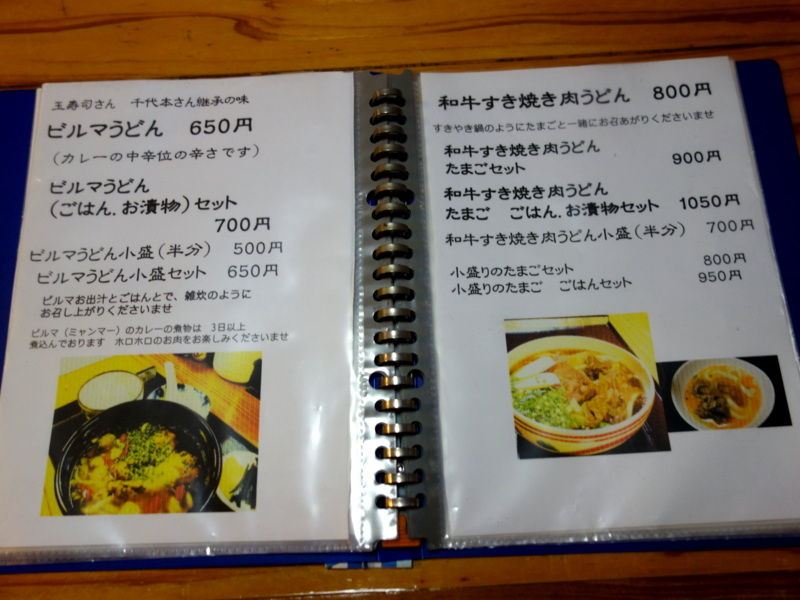 玉寿司さん 千代本さん継承の味
ビルマうどん 650円
(カレーの中辛位の辛さです)
ビルマうどん
(ごはん.お漬物)セット
700円
ビルマうどん小盛(半分) 500円
ビルマうどん小盛セット 650円
ビルマお出汁とごはんとで、雑炊のように
お召し上がりくださいませ
ビルマ(ミャンマー)のカレーの煮物は 3日以上
煮込んでおります ホロホロのお肉をお楽しみくださいませ
和牛すき焼き肉うどん 800円
すきやき鍋のようにたまごと一緒にお召あがりくださいませ
和牛すき焼き肉うどん
たまごセット 900円
和牛すき焼き肉うどん
たまご ごはん.お漬物セット 1050円
和牛すき焼き肉うどん小盛(半分) 700円
小盛りのたまごセット 800円
小盛りのたまご ごはんセット 950円